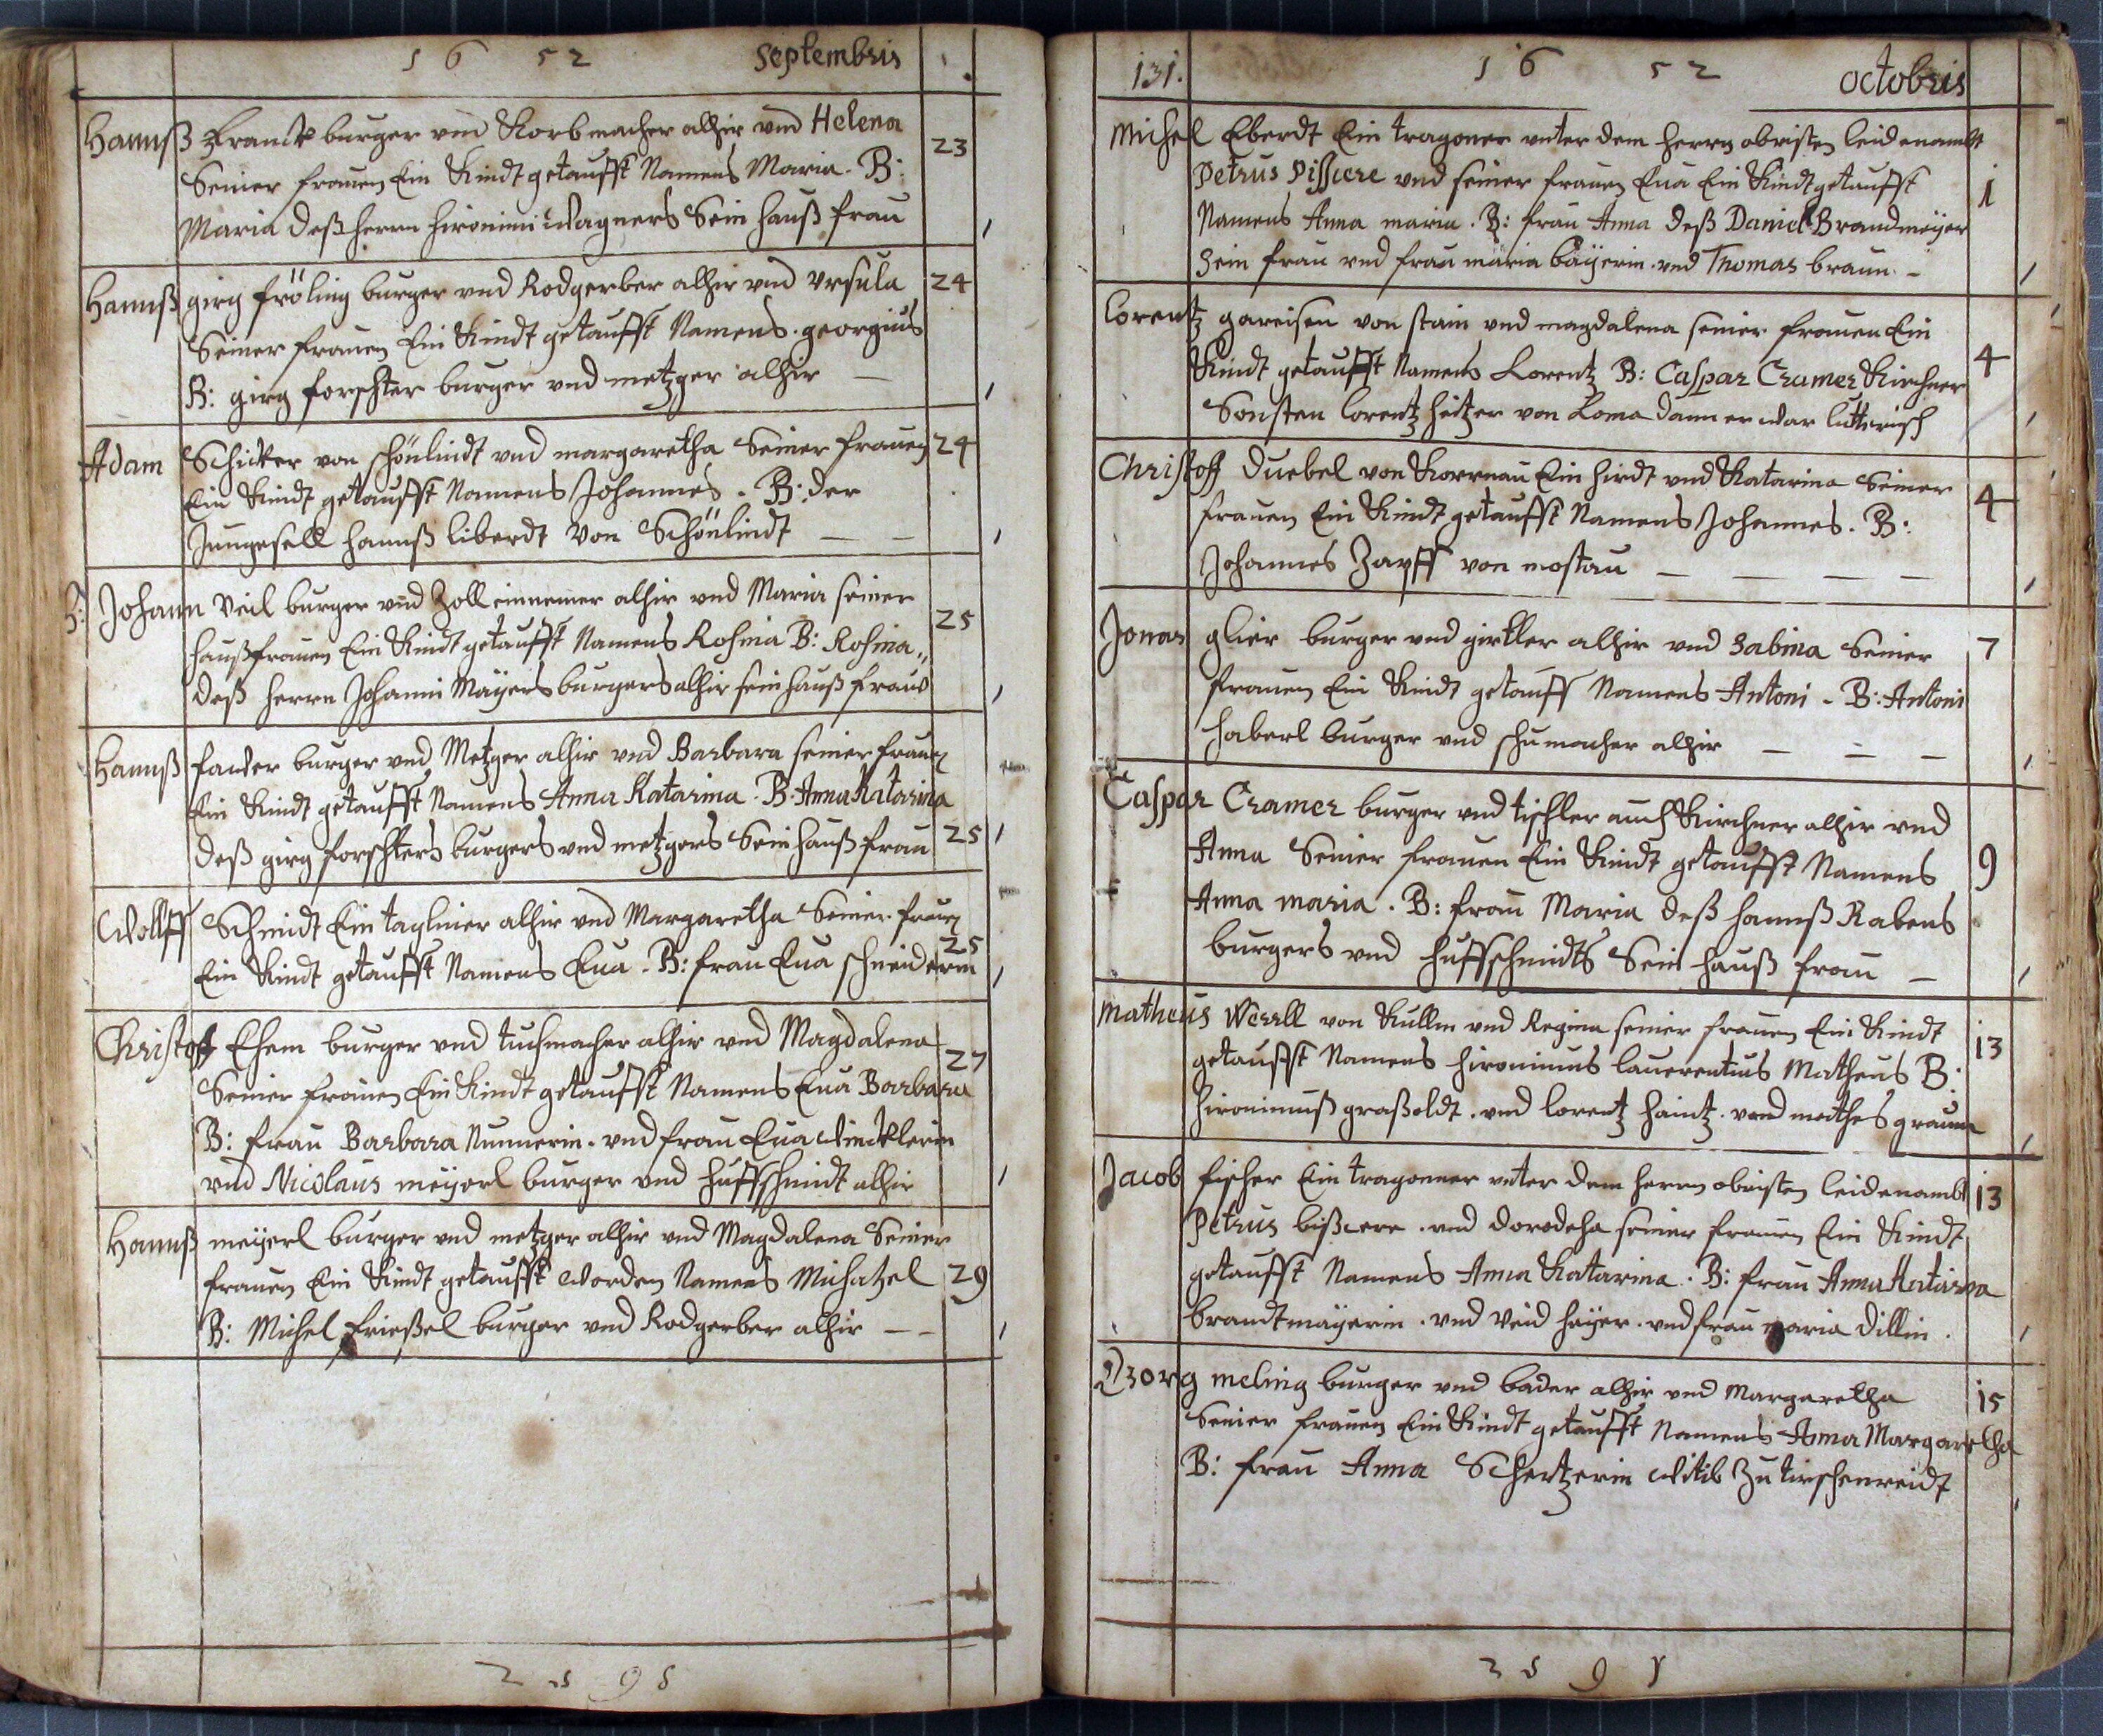 1652 Septembris
Hannß Franck burger vnd Korbmacher alhir vnd Helena 23
Seiner frauen Ein Kindt getaufft Namens Maria. B:
Maria deß herrn Hironimi Wagners Sein hauß frau
Hannß girg fröling burger vnd Rodgerber alhir vnd Vrsula 24
Seiner frauen Ein Kindt getaufft Namens. georgius
B: girg forschter burger vnd metzger alhir —
Adam Schicker von schönlindt vnd margaretha Seiner frauen 24
Ein Kindt getaufft Namens Johannes. B: der
Junngesell hannß liberdt von Schönlindt — —
H: Johann Veil burger vnd Zolleinnemer alhir vnd Maria seiner 25
haußfrauen Ein Kindt getaufft Namens Rosina B: Rosina„
deß herrn Johanni Mayers burgers alhir sein hauß frauw
Hannß burger vnd Metzger alhir vnd Barbara seiner frauen
Ein Kindt getaufft Namens Anna Katarina. B: Anna Katarina
deß girg forschters burgers vnd metzgers Sein hauß frau 25
Wolff Schmidt Ein taglner alhir vnd Margaretha Seiner frauen
Ein Kindt getaufft Namens Eua. B: frau Eua schneiderin 25
Christoff Ehem burger vnd tuchmacher alhir vnd Magdalena 27
Seiner frauen Ein Kindt getaufft Namens Eua Barbara
B: frau Barbara Nunnerin. vnd frau Eua Wincklerin
vnd Nicolaus meyerl burger vnd huffschmidt alhir
Hannß meyerl burger vnd metzger alhir vnd Magdalena Seiner
frauen Ein Kindt getaufft worden Namens Michahel 29
B: Michel Frießel burger vnd Rodgerber alhir — —
131. 1652 octobris
Michel Eberdt Ein tragoner vnter dem herrn obristen leidenambt
Petrus Pissiere vnd seiner frauen Eua Ein Kindt getaufft 1
Namens Anna maria. B: frau Anna deß Daniel Brandmeyer
Sein frau vnd frau maria bayerin. vnd Thomas braun. –
Lorentz gareisen von stain vnd magdalena seiner frauen Ein
Kindt getaufft Namens Lorentz B: Caspar Cramer Kirchner 4
Sonsten lorentz heitzer von Loma dann er war lutterisch
Christoff Duebel von Kornau Ein hirdt vnd Katarina Seiner
frauen Ein Kindt getaufft Namens Johannes. B: 4
Johannes Zapff von mostau — — — —
Jonas glier burger vnd girtler alhir vnd Sabina Seiner 7
frauen Ein Kindt getauff Namens Antoni – B: Antoni
haberl burger vnd schumacher alhir — — —
Caspar Cramer burger vnd tischler auch Kirchner alhir vnd
Anna Seiner frauen Ein Kindt getaufft Namens 9
Anna maria. B: frau Maria deß hannß Rabens
burgers vnd huffschmidts Sein hauß frau —
Matheus Werll von Kulm vnd Regina seiner frauen Ein Kindt 13
getaufft Namens Hironimus lauerentius Matheus B:
Hironimuß graßoldt. vnd lorentz haintz. vnd mathes
Jacob fischer Ein tragonner vnter dem herrn obristen leidenambt 13
Petrus bissiere. vnd dorodeha seiner frauen Ein Kindt
getaufft Namens Anna Katarina. B: frau Anna Katarina
brandtmayerin. vnd Veid heyer. vnd frau maria Dillin.
Georg meling burger vnd bader alhir vnd Margaretha 15
Seiner frauen Ein Kindt getaufft Namens Anna Margaretha
B: frau Anna Schertzerin Witib Zu tirschenreidt